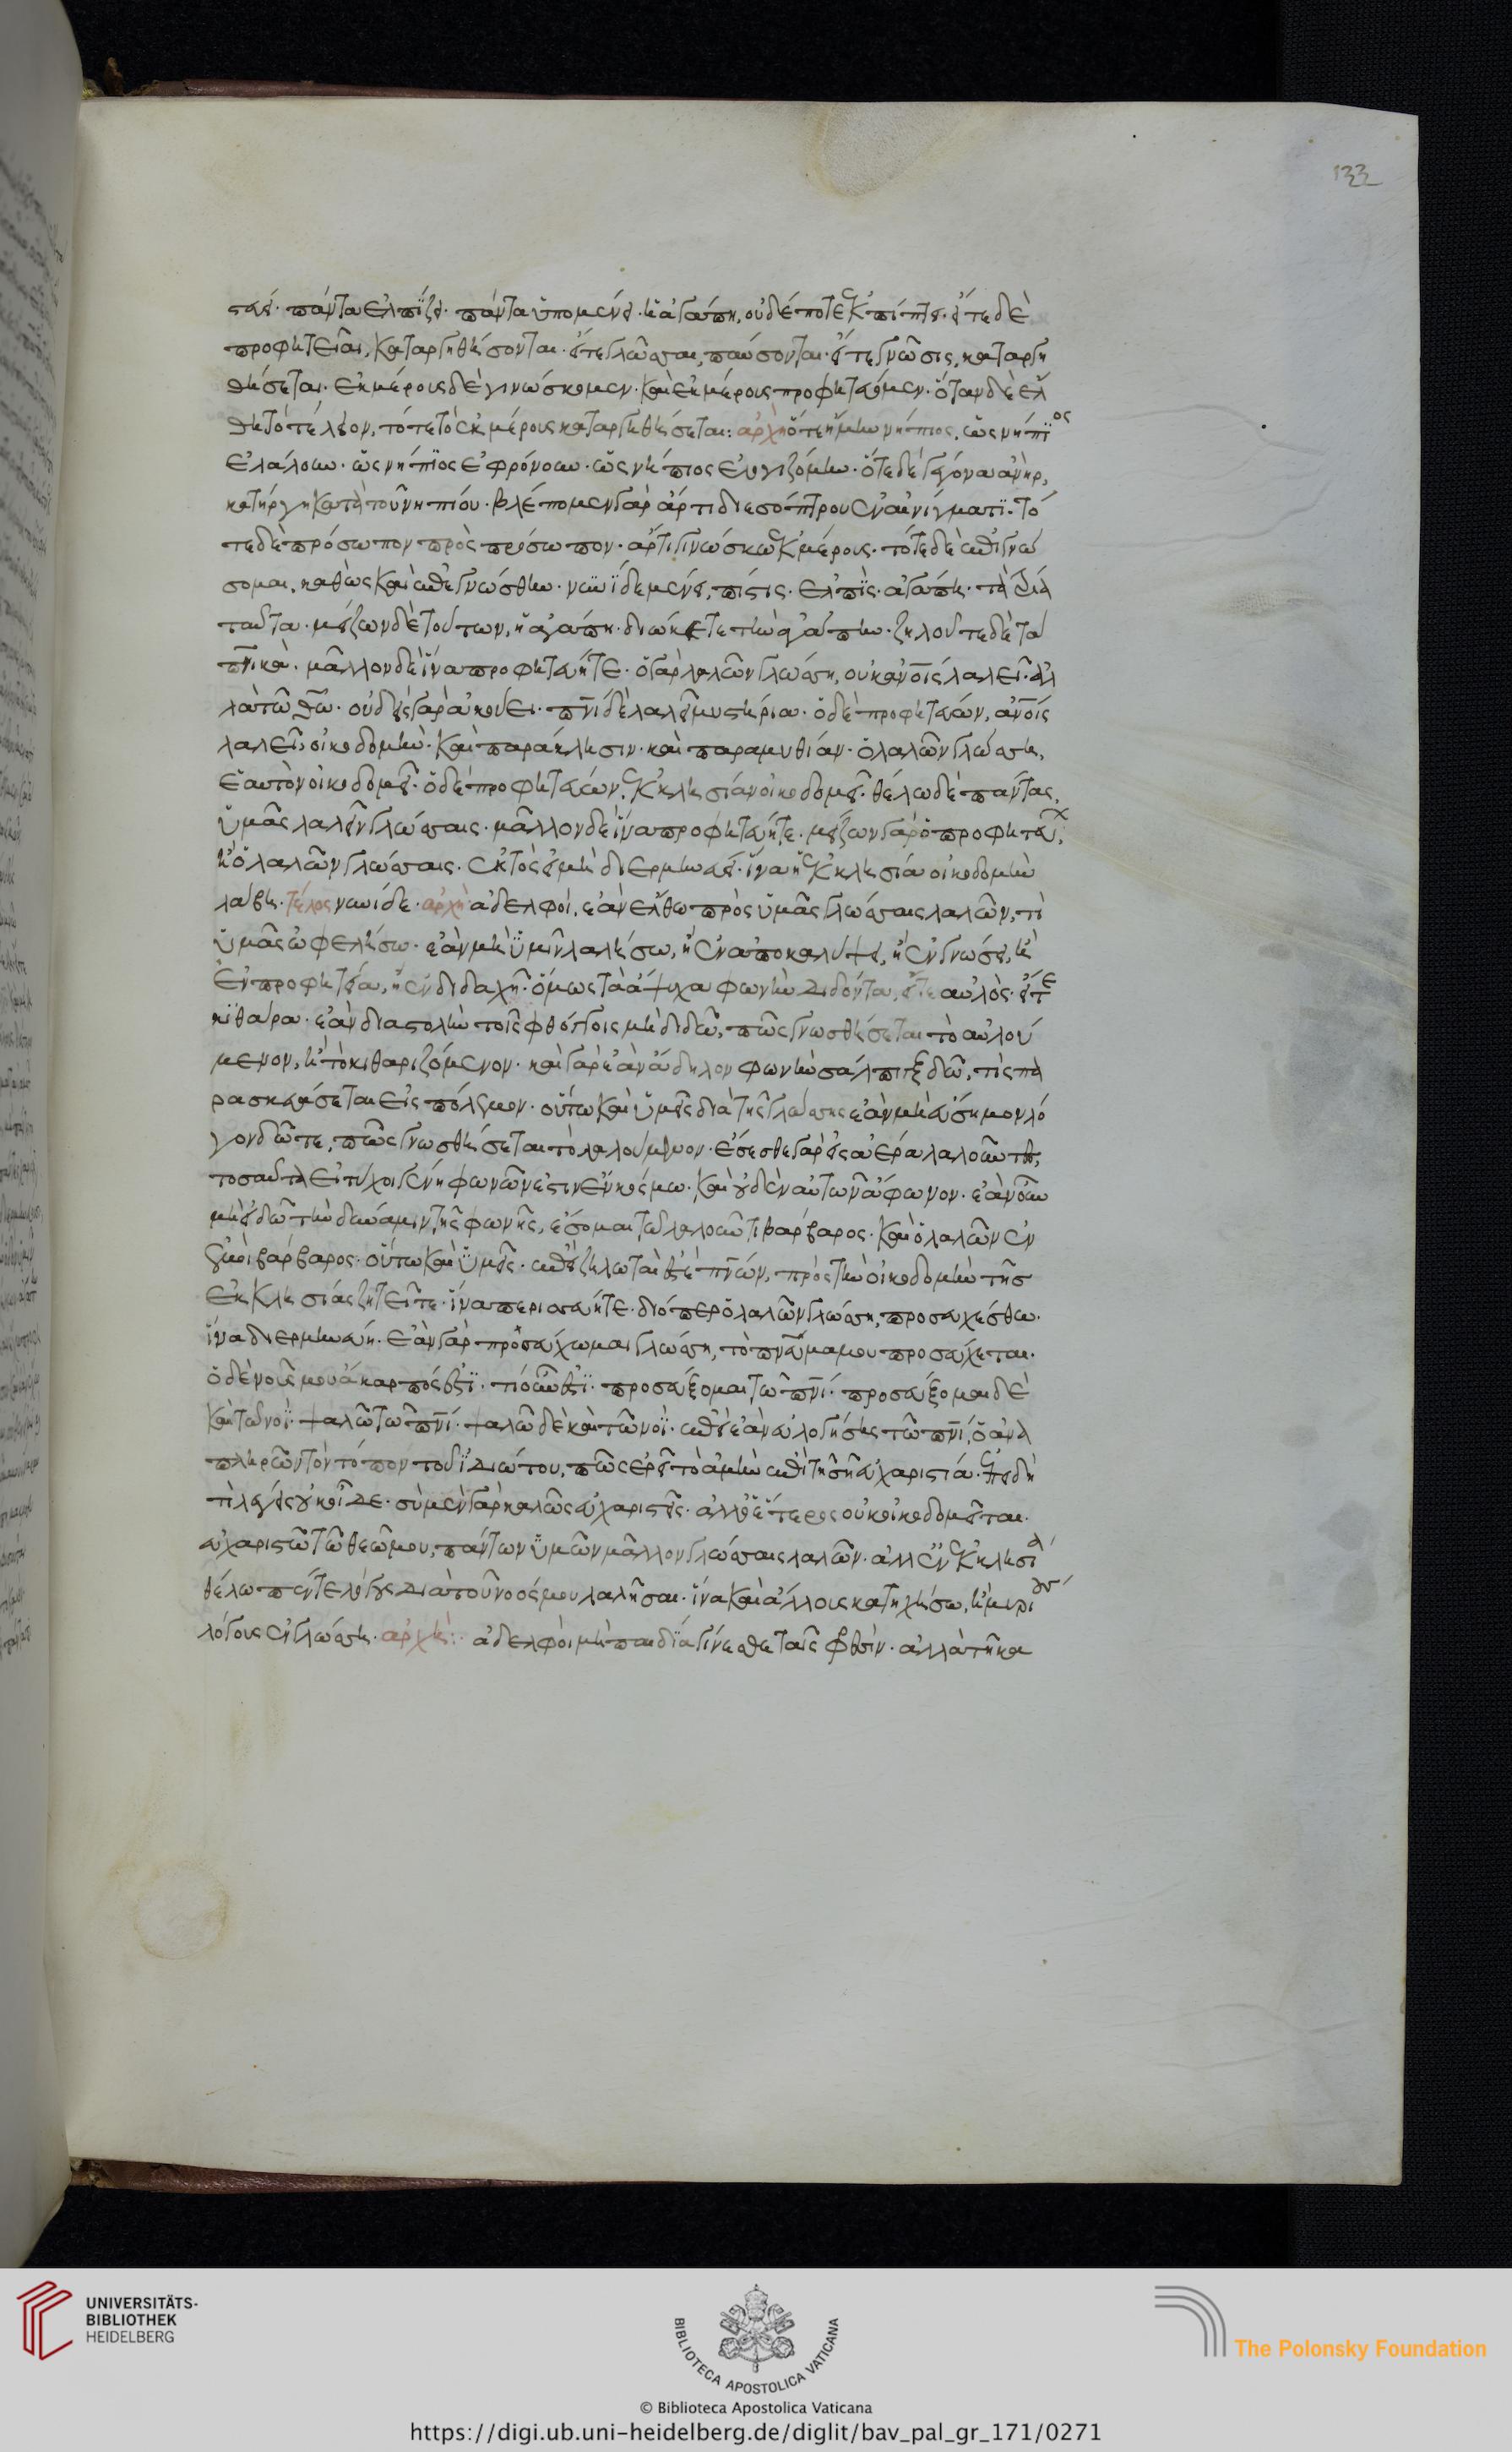 133
στεύει· πάντα ελπίζει· πάντα ὑπομένει· ἡ ἀγάπη, οὐδέποτε ἐκπίπτει· εἴτε δὲ
προφητεῖαι, καταργηθήσονται· εἴτε γλῶσσαι, παύσονται· εἴτε γνῶσις, καταργη
θήσεται· εκ μέρους δὲ γινώσκομεν· καὶ ἐκ μέρους προφητεύομεν· ὅταν δὲ ἔλ
θη τὸ τέλειον, τότε τὸ ἐκ μέρους καταργηθήσεται: αρχὴ ὅτε ἤμην νήπιος, ὡς νήπιος
ελάλουν· ὡς νήπιος εφρόνουν· ὡς νήπιος ελογιζόμην· ὅτε δὲ γέγονα ἀνὴρ,
κατήργηκα τὰ τοῦ νηπίου· βλέπομεν γὰρ ἄρτι δι εσόπτρου ἐν αἰνίγματι· τό
τε δὲ πρόσωπον πρὸς πρόσωπον· ἄρτι γινώσκω ἐκ μέρους· τότε δὲ ἐπιγνώ
σομαι, καθὼς καὶ ἐπεγνώσθην· νυνὶ δὲ μένει, πίστις· ελπὶς· αγάπη· τὰ τρία
ταῦτα· μείζων δὲ τούτων, ἡ ἀγάπη· διώκετε τὴν ἀγάπην· ζηλοῦτε δὲ τὰ
πνικὰ· μᾶλλον δὲ ἵνα προφητεύητε· ὁ γὰρ λαλῶν γλώσση, ουκ ανοις λαλεῖ· ἀλ
λὰ τῶ θω· οὐδεὶς γὰρ ἀκούει· πνι δὲ λαλεῖ μυστήρια· ὁ δὲ προφητεύων, ανοις
λαλεῖ οἰκοδομὴν· καὶ παράκλησιν· καὶ παραμυθίαν· ὁ λαλῶν γλώσση,
ἑαυτὸν οἰκοδομεῖ· ὁ δὲ προφητεύων, ἐκκλησίαν οἰκοδομεῖ· θέλω δὲ πάντας
ὑμᾶς λαλεῖν γλώσσαις· μᾶλλον δὲ ἵνα προφητεύητε· μείζων γὰρ ὁ προφητεύων,
ἢ ὁ λαλῶν γλώσσαις· ἐκτὸς εἰ μὴ διερμηνεύει· ἵνα ἡ ἐκκλησία οἰκοδομὴν
λάβη· τέλος νυνὶ δε· αρχὴ ἀδελφοί, ἐὰν ἔλθω πρὸς ὑμᾶς γλώσσαις λαλῶν, τί
ὑμᾶς ὠφελήσω· ἐὰν μὴ ὑμῖν λαλήσω, ἢ ἐν αποκαλύψει, ἢ ἐν γνώσει, ἢ
ἐν προφητεία, ἢ ἐν διδαχῆ· ὅμως τὰ ἄψυχα φωνὴν διδόντα, εἴτε αυλὸς· εἴτε
κιθάρα· ἐὰν διαστολὴν τοῖς φθόγγοις μὴ διδῶ, πῶς γνωσθήσεται τὸ αυλού
μενον, ἢ τὸ κιθαριζόμενον· καὶ γὰρ ἐὰν ἄδηλον φωνὴν σάλπιγξ δῶ, τίς πα
ρασκευάσεται εἰς πόλεμον· οὕτω καὶ ὑμεῖς διὰ τῆς γλώσσης ἐὰν μὴ εὔσημον λό
γον δῶτε, πῶς γνωσθήσεται τὸ λαλούμενον· ἔσεσθε γὰρ εἰς αέρα λαλοῦντες,
τοσαῦτα εἰ τύχοι γένη φωνῶν ἐστιν ἐν κόσμω· καὶ οὐδὲν αὐτῶν ἄφωνον· ἐὰν οὖν
μὴ εἰδῶ τὴν δύναμιν τῆς φωνῆς, ἔσομαι τῶ λαλοῦντι βάρβαρος· καὶ ὁ λαλῶν ἐν
ἐμοὶ βάρβαρος· οὕτω καὶ ὑμεῖς· ἐπεὶ ζηλωταί ἐστε πνων, πρὸς τὴν οἰκοδομὴν τῆσ
ἐκκλησίας ζητεῖτε· ἵνα περισσεύητε· διόπερ ὁ λαλῶν γλώσση, προσευχέσθω·
ἵνα διερμηνεύη· ἐὰν γὰρ προσεύχωμαι γλώσση, τὸ πνεῦμα μου προσεύχεται·
ὁ δὲ νοῦς μου ἄκαρπός ἐστι· τί οὖν ἐστι· προσεύξομαι τῶ πνι· προσεύξομαι δὲ
καὶ τῶ νοΐ· ψαλῶ τῶ πνι· ψαλῶ δὲ καὶ τῶ νοΐ· ἐπεὶ ἐὰν εὐλογήσης τῶ πνι, ὁ ἀνα
πληρῶν τὸν τόπον τοῦ ἰδιώτου, πῶς ἐρεῖ τὸ ἀμὴν ἐπὶ τῆ σῆ εὐχαριστία· ἐπειδὴ
τί λέγεις οὐκ οἶδε· σὺ μὲν γὰρ καλῶς εὐχαριστεῖς· ἀλλ ὁ ἕτερος οὐκ οἰκοδομεῖται·
εὐχαριστῶ τῶ θεῶ μου, πάντων ὑμῶν μᾶλλον γλώσσαις λαλῶν· ἀλλ ἐν ἐκκλησία
θέλω πέντε λόγους διὰ τοῦ νοός μου λαλῆσαι· ἵνα καὶ ἄλλους κατηχήσω, ἢ μυρίους
λόγους ἐν γλώσση· αρχὴ: ἀδελφοὶ μὴ παιδία γίνεσθε ταῖς φρεσίν· αλλὰ τῆ κα
UNIVERSITÄTS-
BIBLIOTHEK
HEIDELBERG
BIBLIOTECA APOSTOLICA VATICANA
The Polonsky Foundation
© Biblioteca Apostolica Vaticana
https://digi.ub.uni-heidelberg.de/diglit/bav_pal_gr_171/0271